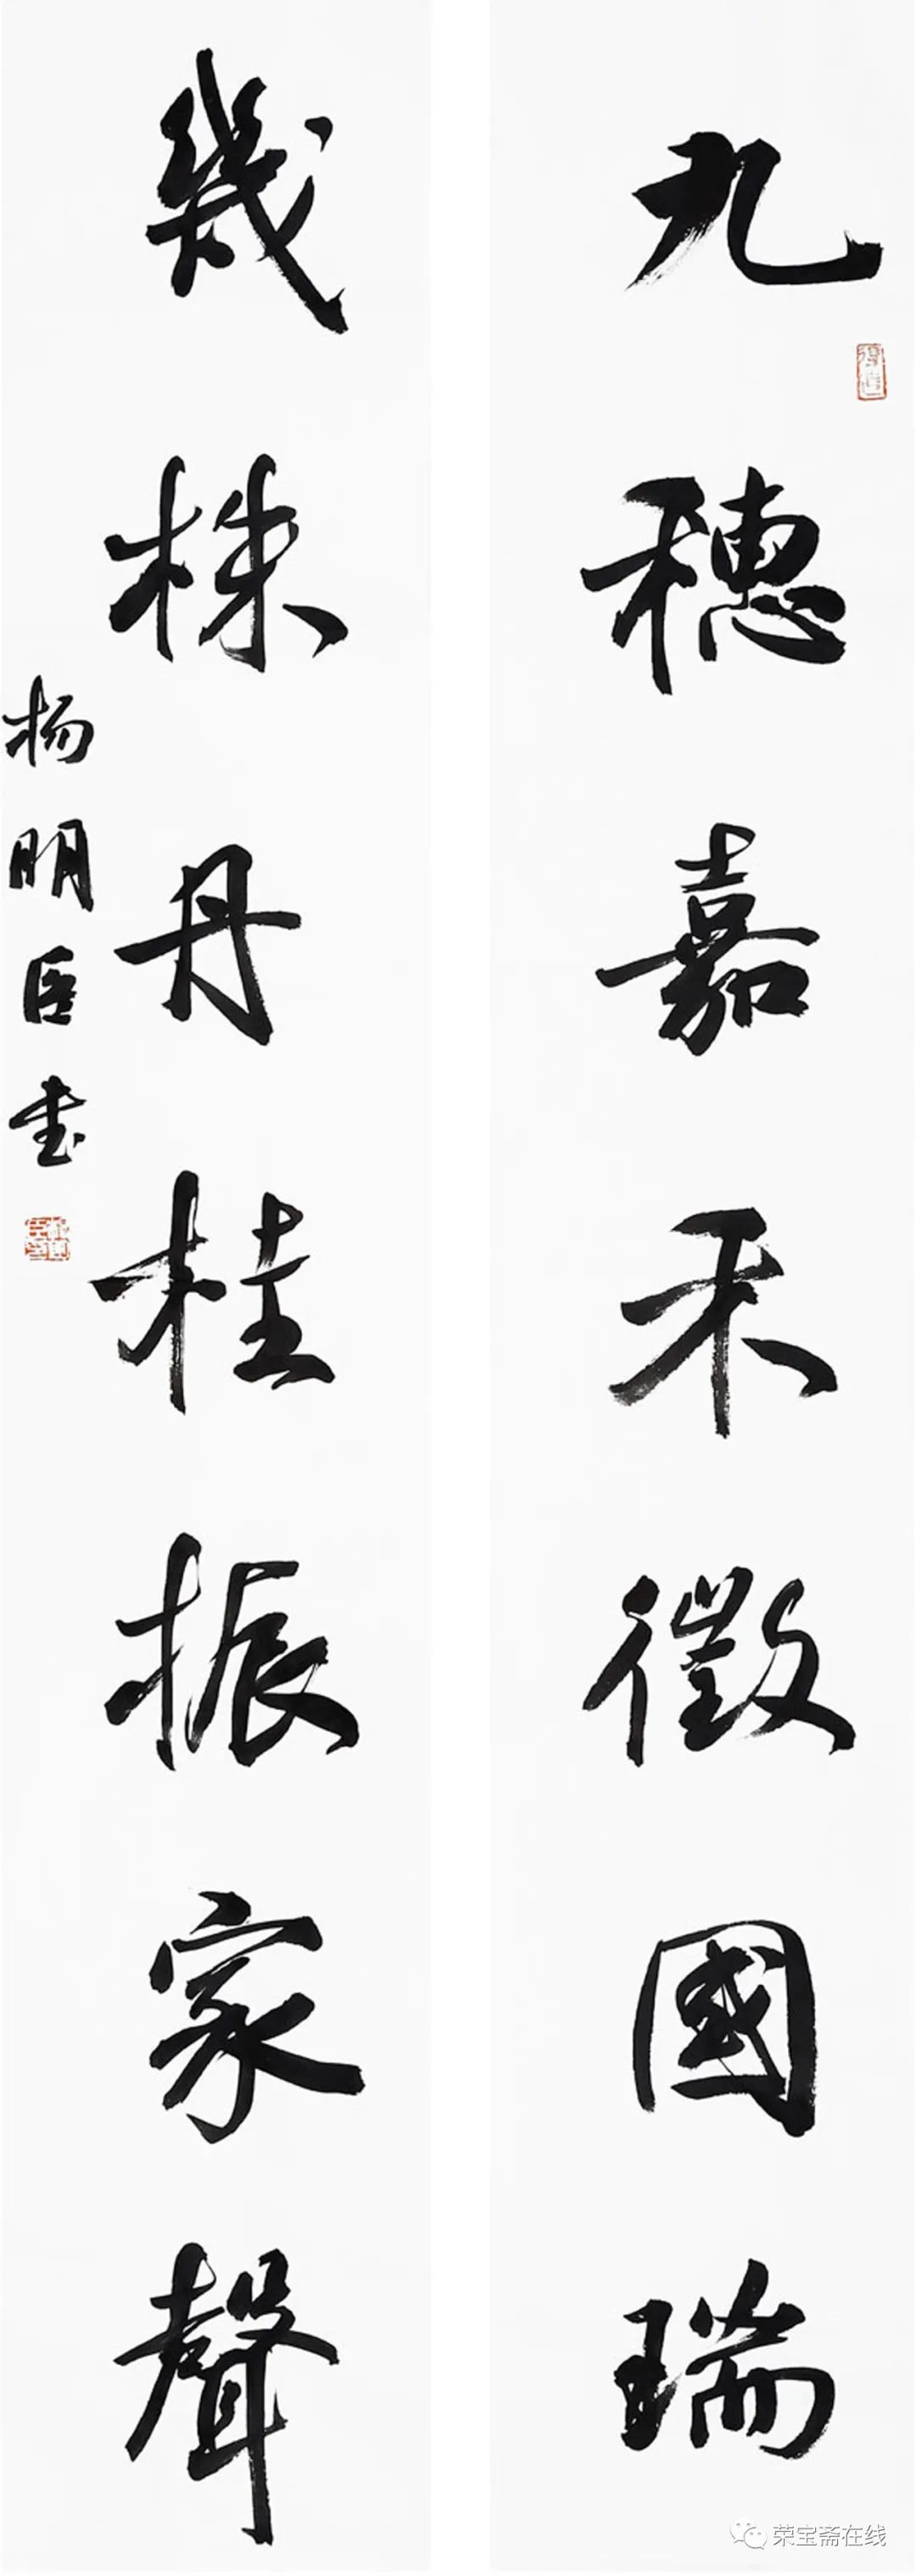 九穗嘉禾徵國瑞
幾株丹桂振家聲
杨明臣书
荣宝斋在线